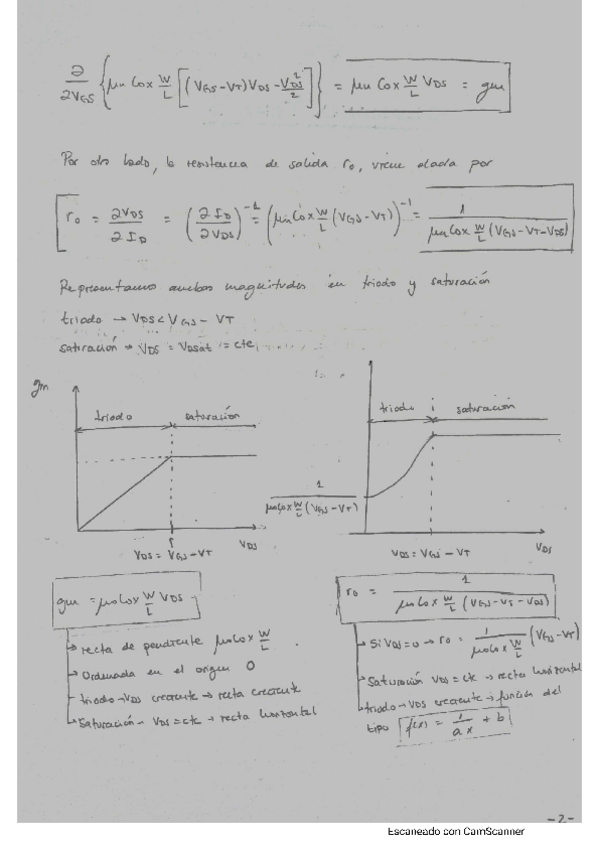 ∂/∂VGS { μn Cox W/L [ (VGS-VT) VDS - VDS²/2 ] } = μn Cox W/L VDS = gm
Por otro lado, la resistencia de salida ro, viene dada por
ro = ∂VDS/∂ID = (∂ID/∂VDS)^-1 = (μn Cox W/L (VGS-VT))^-1 = 1/(μn Cox W/L (VGS-VT-VDS))
Representamos ambas magnitudes en triodo y saturación
triodo → VDS < VGS - VT
saturación → VDS = VDSat = cte
gm
triodo
saturación
VDS = VGS - VT
VDS
triodo
saturación
1/(μn Cox W/L (VGS-VT))
VDS = VGS - VT
VDS
gm = μo Cox W/L VDS
recta de pendiente μo Cox W/L
Ordenada en el origen 0
triodo → VDS creciente → recta creciente
Saturación - VDS = cte → recta horizontal
ro = 1/(μo Cox W/L (VGS-VT-VDS))
Si VDS = 0 → ro = 1/(μo Cox W/L) (VGS-VT)
Saturación VDS = cte → recta horizontal
triodo → VDS creciente → función del
tipo f(x) = 1/ax + b
-2-
Escaneado con CamScanner